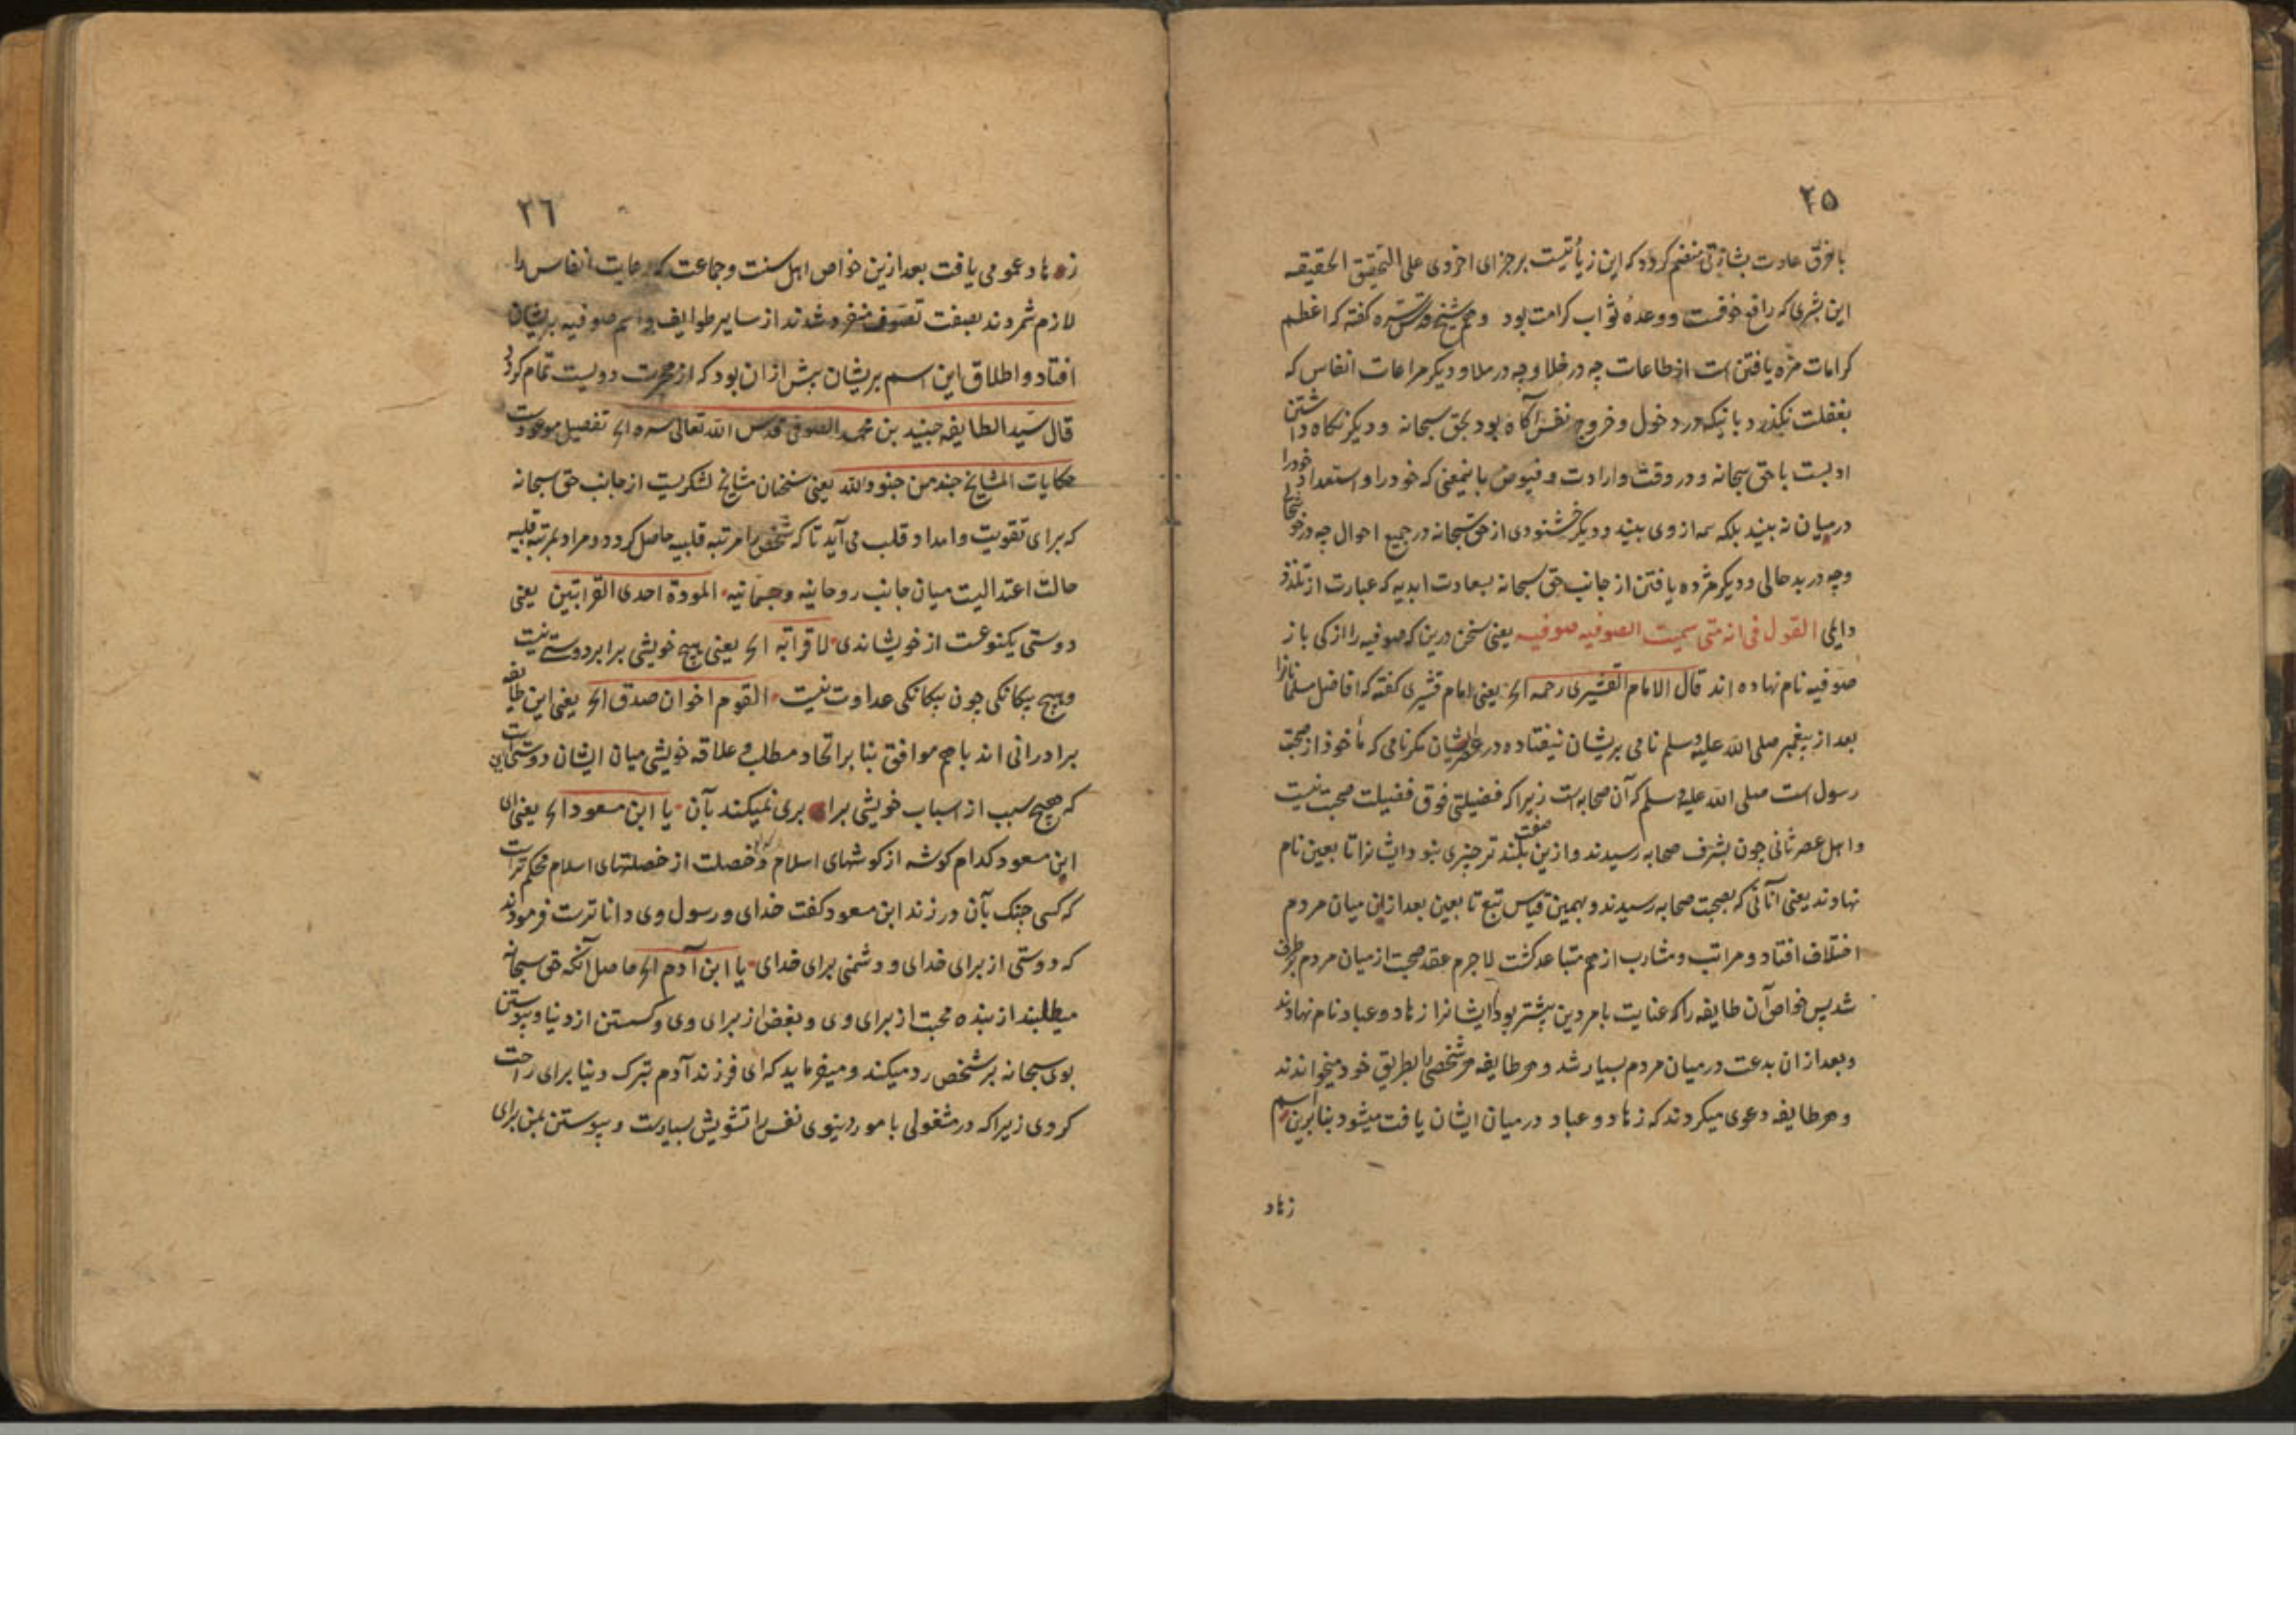 ۲۵
با خرق عادت بشارتی منضم کردد که این زیأتیست بر جزای اخروی علی التحقیق الحقیقه
این بشری که رافع خوفست و وعدهٔ ثواب کرامت بود و هم شیخ قدس سره کفته که اعظم
کرامات مزه یافتن است از طاعات چه در خلا و چه در ملا و دیکر مراعات انفاس که
بغفلت نکذرد بانیکه در دخول و خروج نفس آکاه بود بحق سبحانه و دیکر نکاه داشتن
ادبست با حق سبحانه و در وقت وارادت و فیوض باینمعنی که خود را و استعداد خود را
در میان نه بیند بلکه همه از وی بیند و دیکر خشنودی از حق سبحانه در جمیع احوال چه در خوشحالی
و چه در بد حالی و دیکر مژده یافتن از جانب حق سبحانه بسعادت ابدیه که عبارت از تلذذ
دایمی القول فی انه متی سمیت الصوفیه صوفیه یعنی سخن درین که صوفیه را از کی باز
صوفیه نام نهاده اند قال الامام القشیری رحمه الخ یعنی امام قشیری کفته که افاضل مسلمانانرا
بعد از پیغمبر صلی الله علیه وسلم نامی بریشان نیفتاده در عصر ایشان مکر نامی که مأخوذ از صحبت
رسول است صلی الله علیه وسلم که آن صحابه است زیرا که فضیلتی فوق فضیلت صحبت نیست
و اهل عصر ثانی چون بشرف صحابه رسیدند و ازین صفت بلند تر چیزی نبود ایشانرا تابعین نام
نهادند یعنی آنانی که بصحبت صحابه رسیدند و بهمین قیاس تبع تابعین بعد ازان میان مردم
اختلاف افتاد و مراتب و مشارب از هم متباعد کشت لاجرم عقد صحبت از میان مردم برطرف
شد پس خواص آن طایفه را که عنایت بامر دین بیشتر بود ایشانرا زهاد و عباد نام نهادند
و بعد ازان بدعت در میان مردم بسیار شد و هر طایفه هر شخصی را بطریق خود میخواندند
و هر طایفه دعوی میکردند که زهاد و عباد در میان ایشان یافت میشود بنابرین اسم
زهاد
۲۶
زهاد عمومی یافت بعد ازین خواص اهل سنت و جماعت که رعایت انفاس را
لازم شمردند بصفت تصوف منفرد شدند از سایر طوایف و اسم صوفیه بریشان
افتاد و اطلاق این اسم بریشان پیش ازان بود که از هجرت دویست تمام کردد
قال سید الطایفه جنید بن محمد الصوفی قدس الله تعالی سره الخ تفصیل موعودست
حکایات المشایخ جند من جنود الله یعنی سخنان مشایخ لشکریست از جانب حق سبحانه
که برای تقویت و امداد قلب می آید تا که شخص را مرتبه قلبیه حاصل کردد و مراد بمرتبه قلبیه
حالت اعتدالیت میان جانب روحانیه و جسمانیه المودة احدی القرابتین یعنی
دوستی یکنوعست از خویشاندی لا قرابة الخ یعنی هیچ خویشی برابر دوستی نیست
و هیچ بیکانکی چون بیکانکی عداوت نیست القوم اخوان صدق الخ یعنی این طایفه
برادرانی اند باهم موافق بنا بر اتحاد مطلب و علاقه خویشی میان ایشان دوستی است
که هیچ سبب از اسباب خویشی برابری نمیکند بآن یا ابن مسعود الخ یعنی ای
ابن مسعود کدام کوشه از کوشهای اسلام و خصلت از خصلتهای اسلام محکم تر است
که کسی چنک بآن در زند ابن مسعود کفت خدای و رسول وی داناترست فرمودند
که دوستی از برای خدای و دشمنی برای خدای یا ابن آدم الخ حاصل آنکه حق سبحانه
میطلبد از بنده محبت از برای وی و بغض از برای وی و کسستن از دنیا و پیوستن
بوی سبحانه بر شخص رد میکند و میفرماید که ای فرزند آدم بترک دنیا برای راحت
کردی زیرا که در مشغولی بامور دنیوی نفس را تشویش بسیارست و پیوستن بمن برای